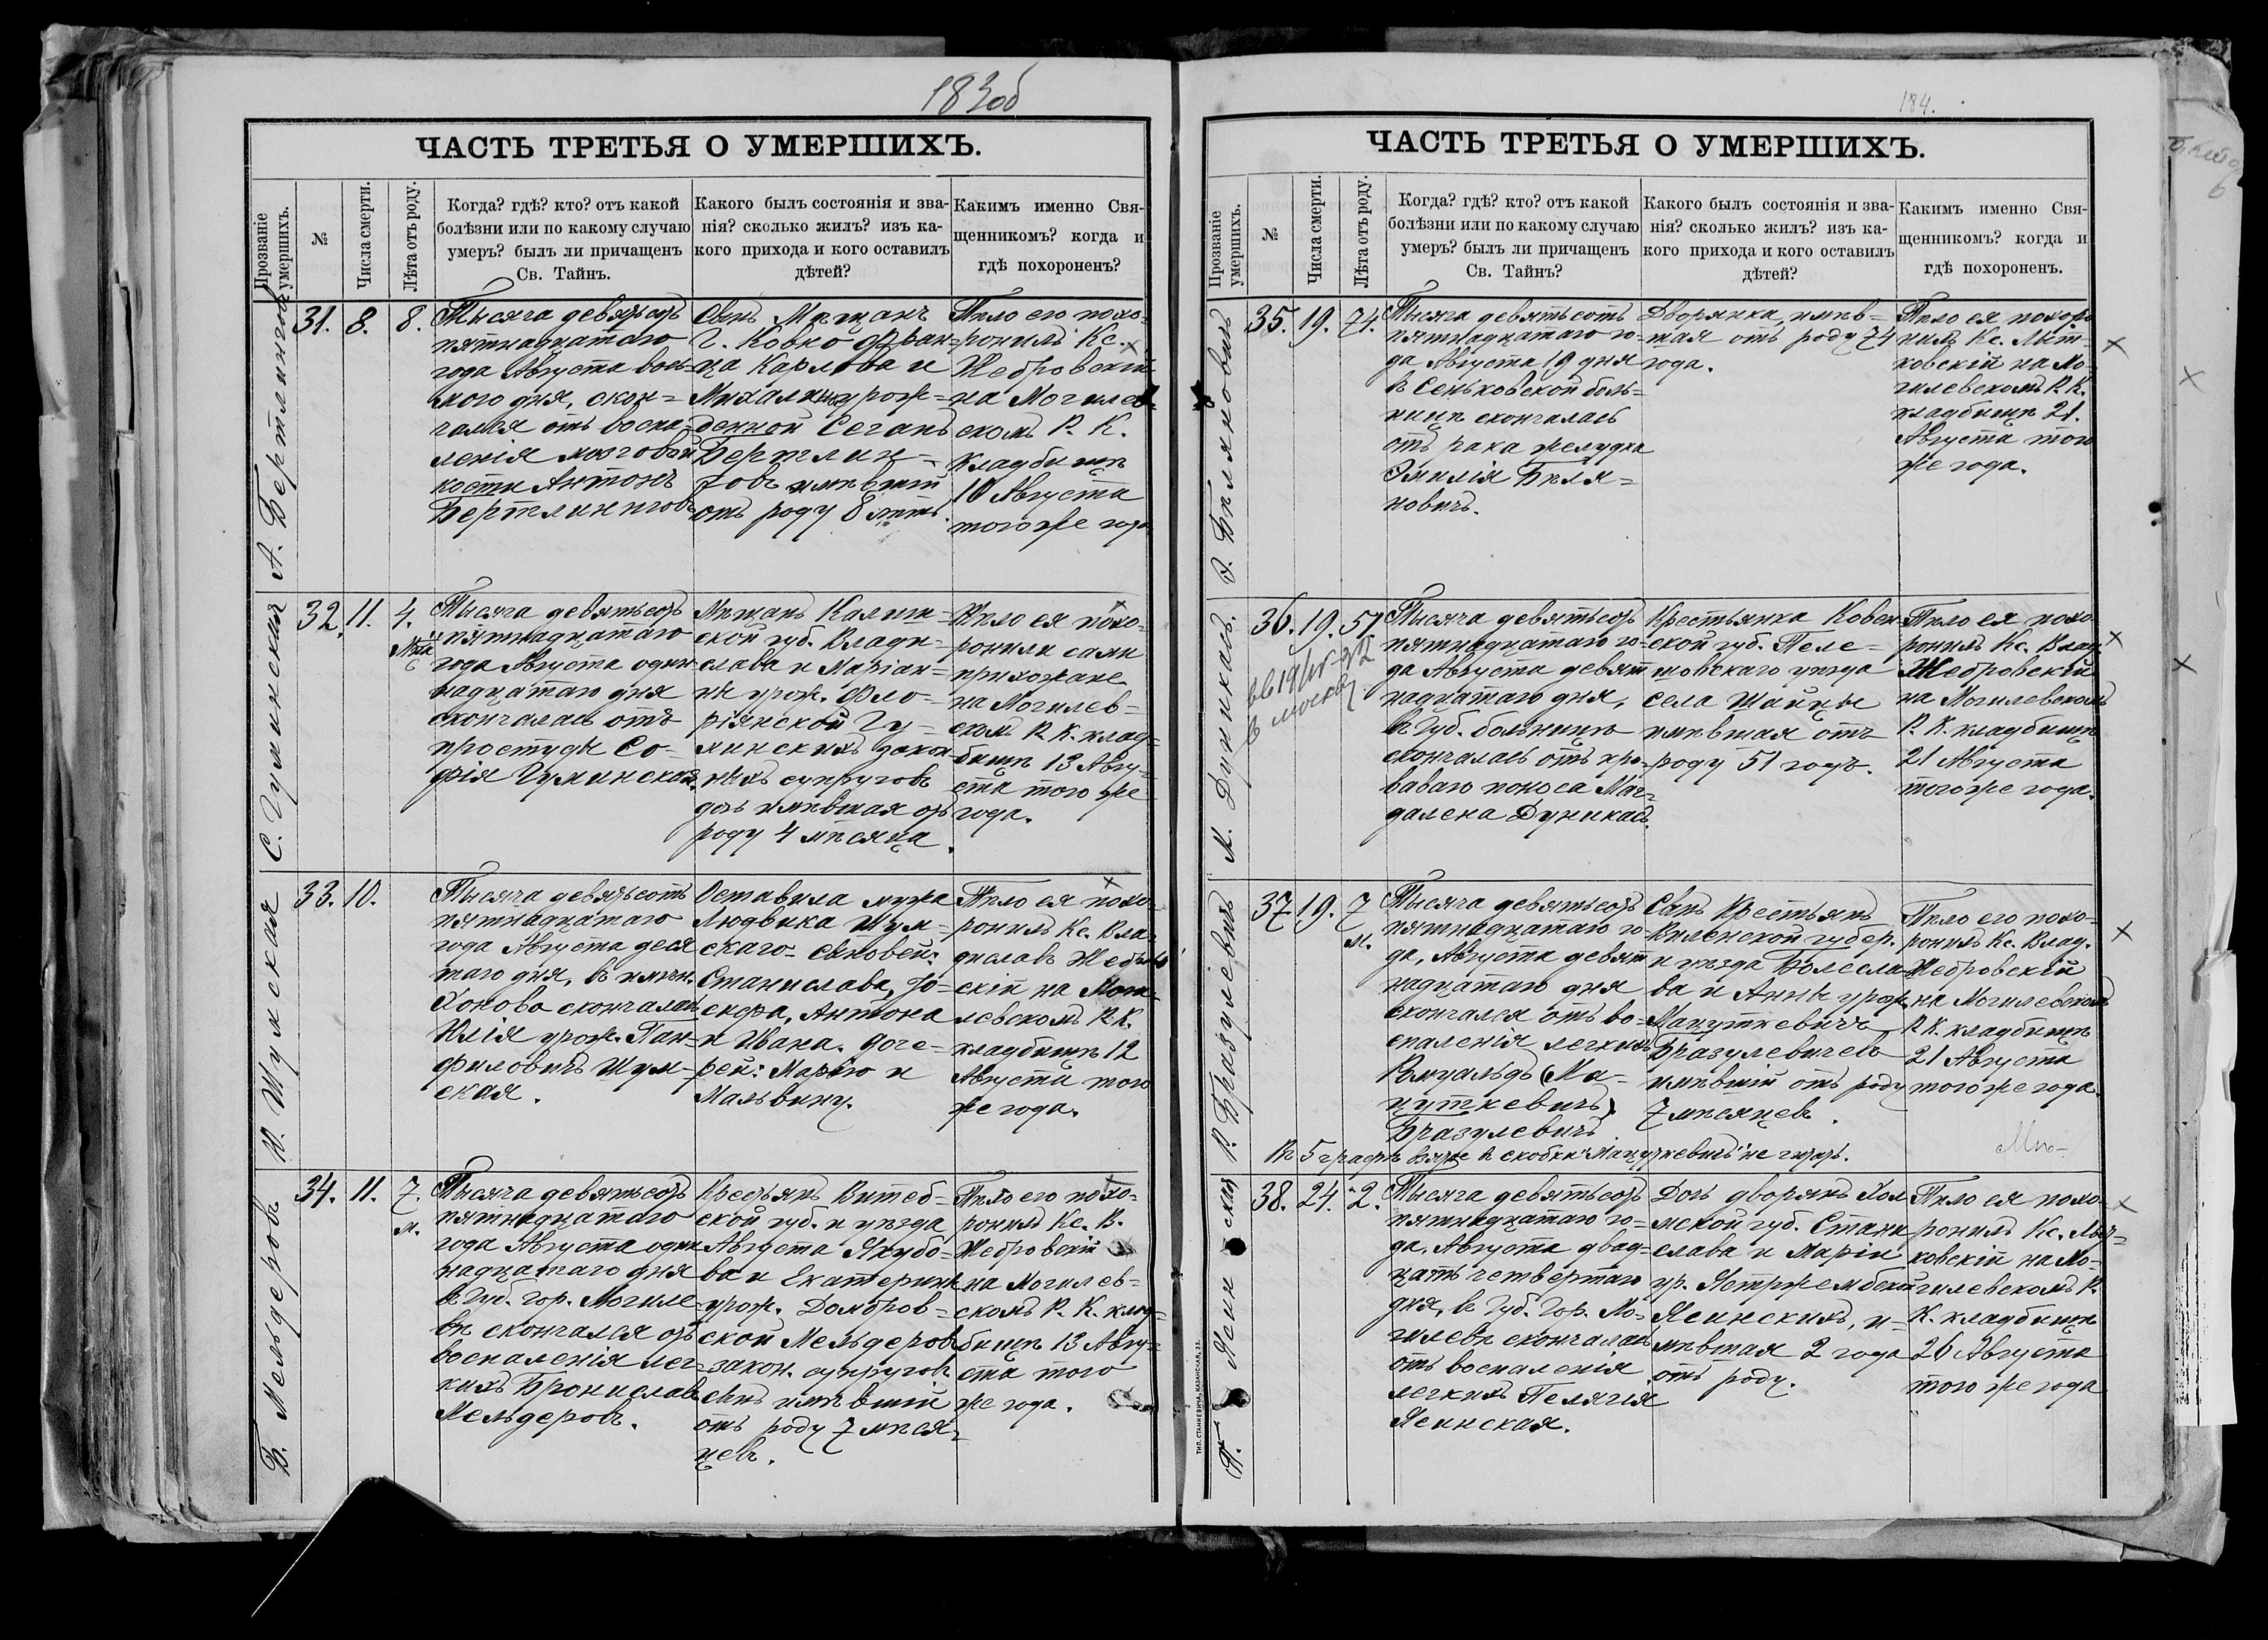 183об
ЧАСТЬ ТРЕТЬЯ О УМЕРШИХЪ.
Прозваніе умершихъ.
№
Числа смерти.
Лѣта отъ роду.
Когда? гдѣ? кто? отъ какой
болѣзни или по какому случаю
умеръ? былъ ли причащенъ
Св. Тайнъ.
Какого былъ состоянія и зва-
нія? сколько жилъ? изъ ка-
кого прихода и кого оставилъ
дѣтей?
Какимъ именно Свя-
щенникомъ? когда и
гдѣ похороненъ?
А. Бертлинговъ
31. 8. 8.
Тысяча девятьсотъ
пятнадцатаго
года Августа вось-
мого дня, скон=
чался отъ воспа-
ленія мозговой
кости Антонъ
Бертлинговъ
Сынъ Мѣщанъ
г. Ковно Фран-
ца Карлова и
Михалины урож=
денной Сегань
Бертлин-
говъ имѣвшій
отъ роду 8 лѣтъ.
Тѣло его похо-
ронилъ Кс.
Жебровскій
на Могилев-
скомъ Р. К.
кладбищѣ
10 Августа
того же года
С. Гуминская
32. 11. 4. Мѣся
Тысяча девятьсотъ
пятнадцатаго
года Августа один
надцатаго дня
скончалась отъ
простуды Со-
фія Гуминская.
Мѣщанъ Калиш-
ской губ. Влади-
слава и Маріан-
ны урож. Фло-
ріянской Гу-
минскихъ закон-
ныхъ супруговъ
дочь имѣвшая отъ
роду 4 мѣсяца.
Тѣло ея похо-
ронили сами
прихожане
на Могилев=
ском Р. К. клад-
бищѣ 13 Авгу-
ста того же
года.
Ю. Шумская
33. 10.
Тысяча девятьсотъ
пятнадцатаго
года Августа деся
таго дня, въ имѣн.
Хоново скончалась
Юлія урож. Пан-
филовичъ Шум-
ская.
Оставила мужа
Людвика Шум-
скаго - сыновей:
Станислава, Іо-
сифа, Антона
и Ивана. доче-
рей: Марію и
Мальвину.
Тѣло ея похо-
ронилъ Кс. Вла-
диславъ Жебров
скій на Моги-
левскомъ Р. К.
кладбищѣ 12
Августа того
же года.
Б. Мельдеровъ
34. 11. 7. м.
Тысяча девятьсотъ
пятнадцатаго
года Августа один
надцатаго дня
въ Губ. гор. Могиле-
вѣ скончался отъ
воспаленія лег-
кихъ Брониславъ
Мельдеровъ.
Крестьянъ Витеб-
ской губ. и уѣзда
Августа Якубо-
ва и Екатерины
урож. Домбров-
ской Мельдеровъ
закон. супруговъ
сынъ имѣвшій
отъ роду 7 мѣся-
цевъ.
Тѣло его похо-
ронилъ Кс. В.
Жебровскій
на Могилев=
скомъ Р. К. клад-
бищѣ 13 Авгу-
ста того
же года.
184.
ЧАСТЬ ТРЕТЬЯ О УМЕРШИХЪ.
Прозваніе умершихъ.
№
Числа смерти.
Лѣта отъ роду.
Когда? гдѣ? кто? отъ какой
болѣзни или по какому случаю
умеръ? былъ ли причащенъ
Св. Тайнъ?
Какого былъ состоянія и зва-
нія? сколько жилъ? изъ ка-
кого прихода и кого оставилъ
дѣтей?
Какимъ именно Свя-
щенникомъ? когда и
гдѣ похороненъ.
Э. Биляновичъ
35. 19. 74.
Тысяча девятьсотъ
пятнадцатаго го-
да Августа 19 дня
въ Сеньковской боль-
ницѣ скончалась
отъ рака желудка
Эмилія Биля=
новичъ.
Дворянка, имѣв=
шая отъ роду 74
года.
Тѣло ея похоро
нилъ Кс. Лют-
ковскій на Мо-
гилевскомъ Р. К.
кладбищѣ 21.
Августа того
же года.
М. Дуникасъ.
36. 19. 51
Тысяча девятьсотъ
пятнадцатаго го-
да Августа девят
надцатаго дня,
въ Губ. больницѣ
скончалась отъ кро-
ваваго поноса Маг-
далена Дуникасъ.
Крестьянка Ковен
ской губ. Поне-
вѣжскаго уѣзда
села Шайцы
имѣвшая отъ
роду 51 годъ.
Тѣло ея похо
ронилъ Кс. Влад.
Жебровскій
на Могилевскомъ
Р. К. кладбищѣ
21 Августа
того же года.
Р. Бразулевичъ
37 19. 7 м.
Тысяча девятьсотъ
пятнадцатаго го-
да, Августа девят
надцатаго дня
скончался отъ во-
спаленія легкихъ
Ромуальдъ (Ма-
цуткевичъ)
Бразулевичъ
Сынъ Крестьянъ
Виленской губер.
и уѣзда Болесла
ва и Анны урож.
Мацуткевичъ
Бразулевичевъ
имѣвшій отъ роду
7 мѣсяцевъ.
Тѣло его похо-
ронилъ Кс. Влад.
Жебровскій
на Могилевскомъ
Р. К. кладбищѣ
21 Августа
того же года.
Въ 5 графѣ взятое въ скобки "Мацуткевичъ" не читать.
П. Ясинская
38. 24. 2.
Тысяча девятьсотъ
пятнадцатаго го-
да, Августа двад-
цать четвертаго
дня, въ Губ. Гор. Мо-
гилевѣ скончалась
отъ воспаленія
легкихъ Пелягія
Ясинская.
Дочь дворянъ Хол
мской губ. Стани
слава и Маріи
ур. Ястржембской
Ясинскихъ, и-
мѣвшая 2 года
отъ роду.
Тѣло ея похо-
ронилъ Кс. Лют-
ковскій на Мо-
гилевскомъ Р.
К. кладбищѣ
26 Августа
того же года
ТИП. СТАНКЕВИЧА, КАЗАНСКАЯ, 33.